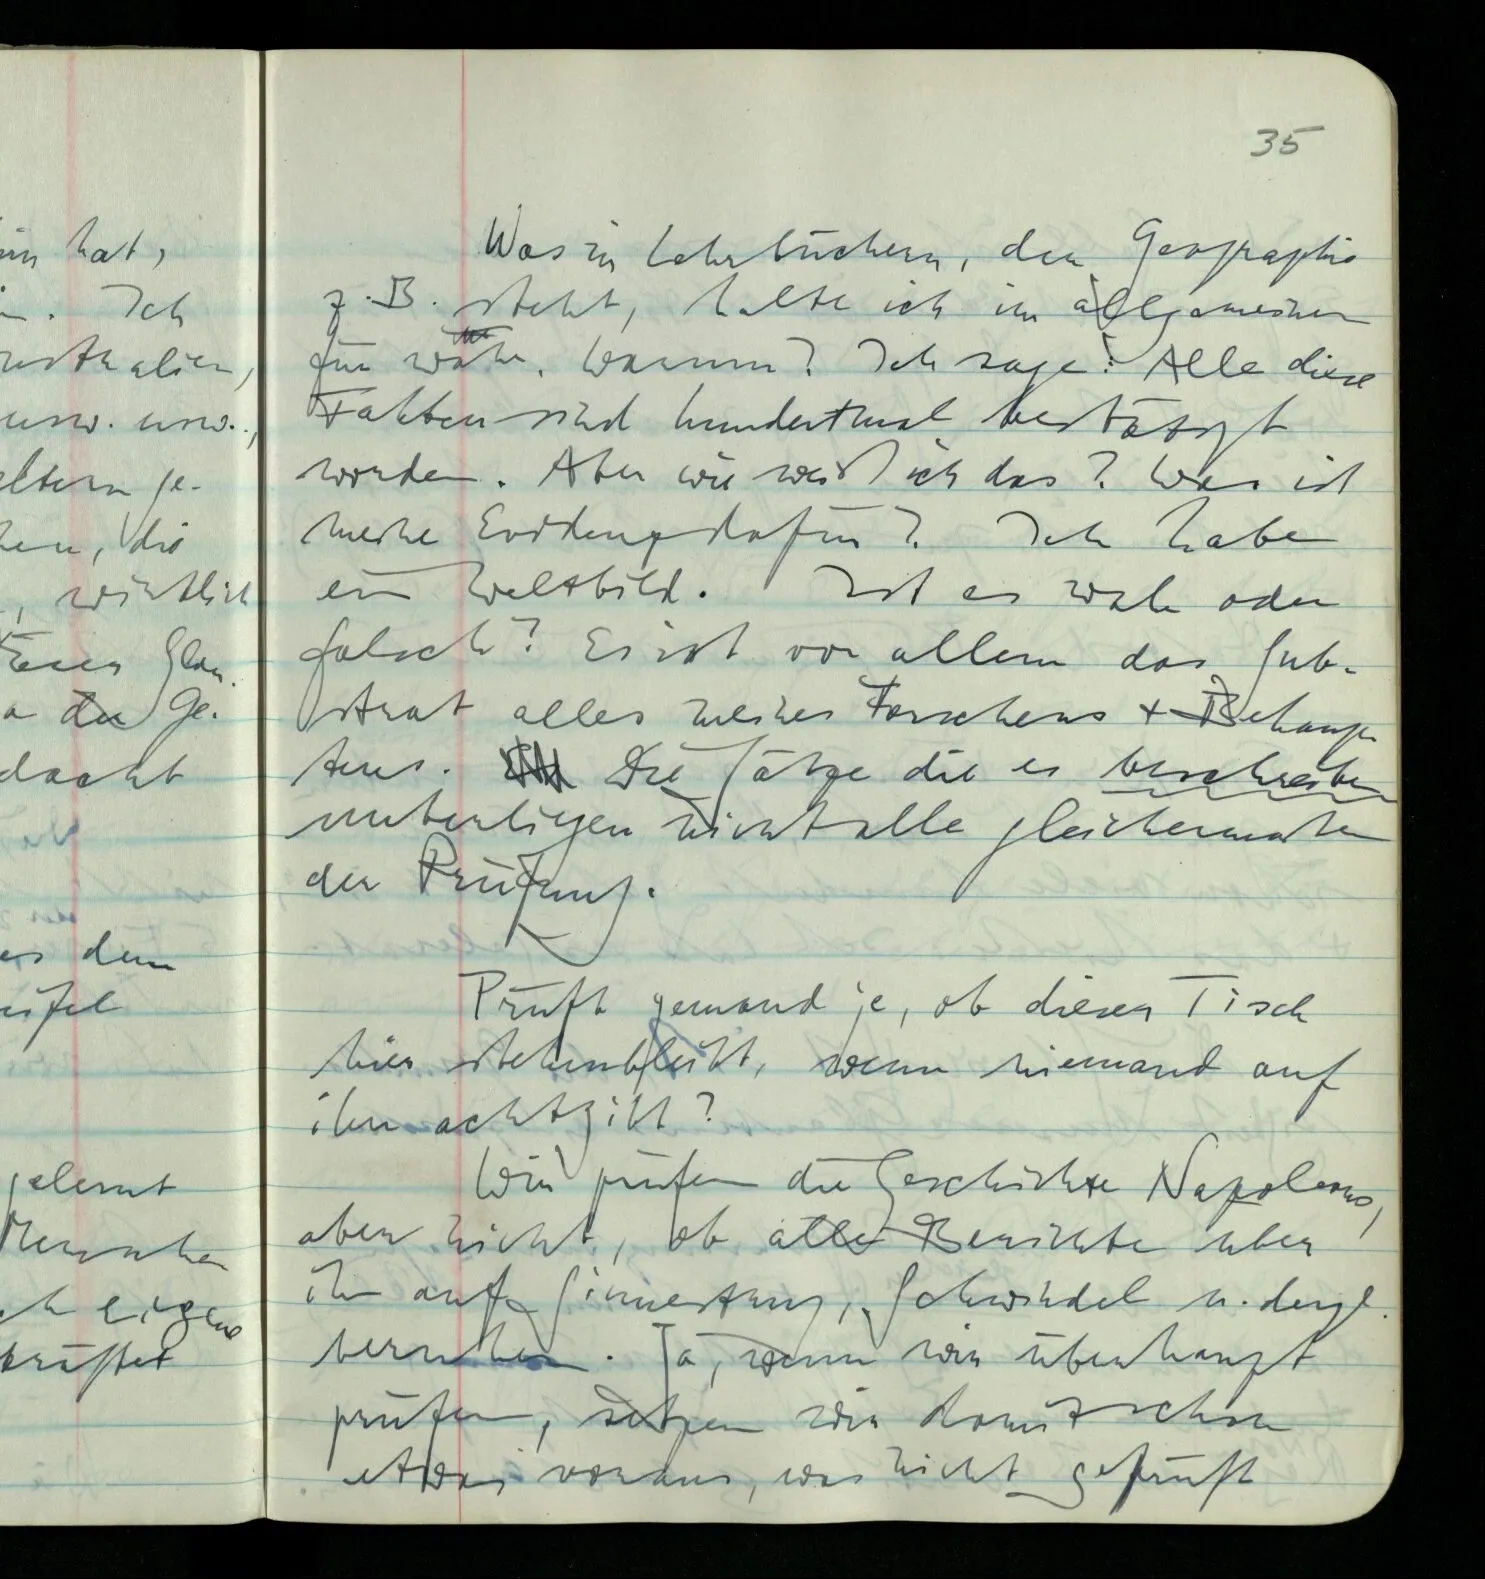 hat,
Ich
usw. usw.,
eltern ge-
die
, wirklich
Ge-
dacht
es dem
gelernt
Menschen
eigene
35
Was in Lehrbüchern, der Geographie
z.B. steht, halte ich im allgemeinen
für wahr. Warum? Ich sage: Alle diese
Fakten sind hundertmal bestätigt
worden. Aber wie weiß ich das? Was ist
meine Evidenz dafür? Ich habe
ein Weltbild. Ist es wahr oder
falsch? Es ist vor allem das Sub-
strat alles meines Forschens + Behaup-
tens. Die Sätze die es beschreiben
unterliegen nicht alle gleichermaßen
der Prüfung.
Prüft jemand je, ob dieser Tisch
hier stehenbleibt, wenn niemand auf
ihn achtgibt?
Wir prüfen die Geschichte Napoleons,
aber nicht, ob alle Berichte über
ihn auf Sinnestrug, Schwindel u. dergl.
beruhen. Ja, wenn wir überhaupt
prüfen, setzen wir damit schon
etwas voraus, was nicht geprüft